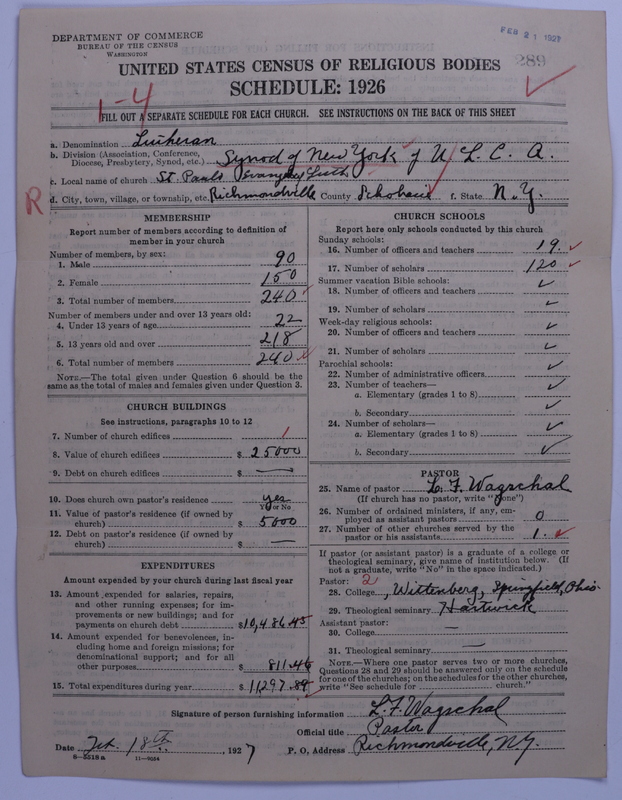 DEPARTMENT OF COMMERCE
BUREAU OF THE CENSUS
WASHINGTON
FEB 21 1927
289
UNITED STATES CENSUS OF RELIGIOUS BODIES
SCHEDULE: 1926
1-4
FILL OUT A SEPARATE SCHEDULE FOR EACH CHURCH. SEE INSTRUCTIONS ON THE BACK OF THIS SHEET
a. Denomination Lutheran
b. Division (Association, Conference, Diocese, Presbytery, Synod, etc.) Synod of New York of U. L. C. A.
c. Local name of church St Pauls Evang Luth
R
d. City, town, village, or township, etc. Richmondville County Schoharie f. State N.Y.
MEMBERSHIP
Report number of members according to definition of
member in your church
Number of members, by sex:
1. Male 90
2. Female 150
3. Total number of members 240
Number of members under and over 13 years old:
4. Under 13 years of age 22
5. 13 years old and over 218
6. Total number of members 240
NOTE.—The total given under Question 6 should be
same as the total of males and females given under Question 3.
CHURCH BUILDINGS
See instructions, paragraphs 10 to 12
7. Number of church edifices 1
8. Value of church edifices $ 25000
9. Debt on church edifices $ —
10. Does church own pastor's residence yes
Yes or No
11. Value of pastor's residence (if owned by
church) $ 5000
12. Debt on pastor's residence (if owned by
church) $ —
EXPENDITURES
Amount expended by your church during last fiscal year
13. Amount expended for salaries, repairs,
and other running expenses; for im-
provements or new buildings; and for
payments on church debt $10,486.45
14. Amount expended for benevolences, in-
cluding home and foreign missions; for
denominational support; and for all
other purposes $ 811.46
15. Total expenditures during year $ 11297.89
CHURCH SCHOOLS
Report here only schools conducted by this church
Sunday schools:
16. Number of officers and teachers 19
17. Number of scholars 120
Summer vacation Bible schools:
18. Number of officers and teachers ✓
19. Number of scholars ✓
Week-day religious schools:
20. Number of officers and teachers ✓
21. Number of scholars ✓
Parochial schools:
22. Number of administrative officers ✓
23. Number of teachers—
a. Elementary (grades 1 to 8) ✓
b. Secondary ✓
24. Number of scholars—
a. Elementary (grades 1 to 8) ✓
b. Secondary ✓
PASTOR
25. Name of pastor L. F. Wagschal
(If church has no pastor, write "none")
26. Number of ordained ministers, if any, em-
ployed as assistant pastors 0
27. Number of other churches served by the
pastor or his assistants 1
If pastor (or assistant pastor) is a graduate of a college or
theological seminary, give name of institution below. (If
not a graduate, write "No" in the space indicated.)
Pastor: 2
28. College Wittenberg, Springfield, Ohio
29. Theological seminary Hartwick
Assistant pastor:
30. College —
31. Theological seminary —
NOTE.—Where one pastor serves two or more churches,
Questions 28 and 29 should be answered only on the schedule
for one of the churches; on the schedules for the other churches,
write "See schedule for church."
Signature of person furnishing information L. F. Wagschal
Official title Pastor
Date Feb. 18th, 1927 P. O. Address Richmondville, N.Y.
8-5518a 11-9054